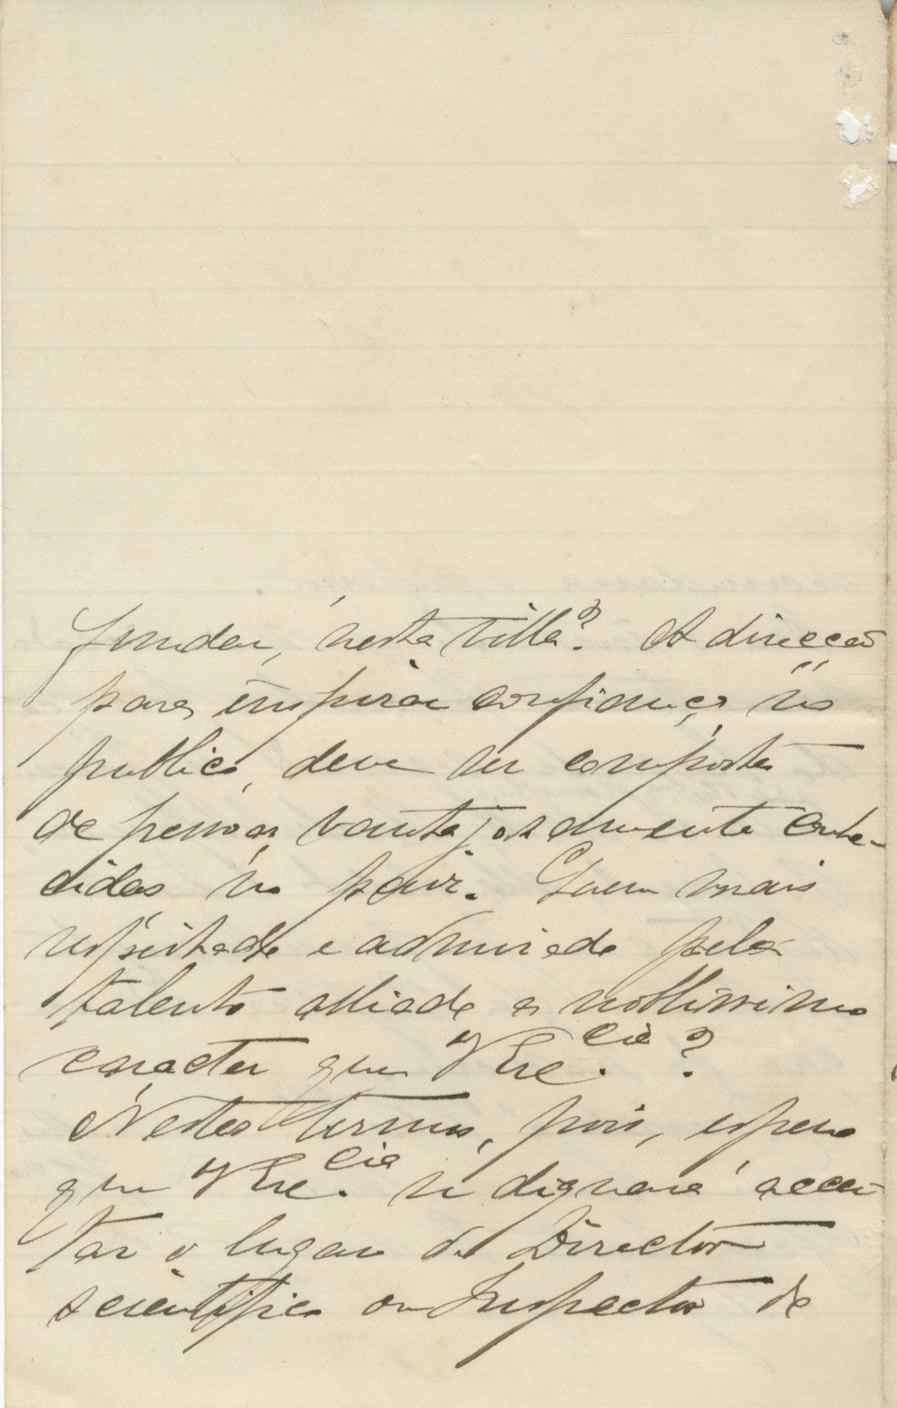 fundar, n'esta villa? A direcção
para inspirar confiança no
publico, deve ser composta
de pessoas vantajosamente conhe-
cidas no paiz. Quem mais
respeitado e admirado pelo
talento alliado a nobilissimo
caracter que V Exc.cia ?
N'estes termos, pois, espero
que V Exc.cia se dignará accei-
tar o lugar de Director
scientifico ou Inspector de